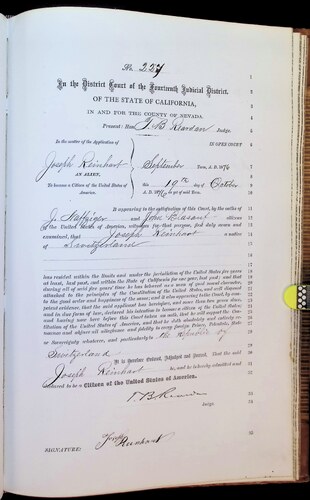 No. 224
In the District Court of the Fourteenth Judicial District,
OF THE STATE OF CALIFORNIA,
IN AND FOR THE COUNTY OF NEVADA.
Present: Hon. T. B. Reardan Judge.
In the matter of the Application of
IN OPEN COURT
Joseph Reinhart
September Term, A. D. 1876
AN ALIEN,
To become a Citizen of the United States of America.
this 19th day of October
A. D. 1876 being of said Term.
It is appearing to the satisfaction of this Court, by the oaths of
J. Naffziger and John citizens
of the United States of America, witnesses for that purpose, first duly sworn and
examined, that Joseph Reinhart a native
of Switzerland
has resided within the limits and under the jurisdiction of the United States five years
at least, last past, and within the State of California for one year, last past; and that
during all of said five years' time he has behaved as a man of good moral character,
attached to the principles of the Constitution of the United States, and well disposed
to the good order and happiness of the same; and it also appearing to the Court, by com-
petent evidence, that the said applicant has heretofore, and more than two years since,
and in due form of law, declared his intention to become a citizen of the United States;
and having now here before this Court, taken an oath, that he will support the Con-
stitution of the United States of America, and that he doth absolutely and entirely re-
nounce and abjure all allegiance and fidelity to every foreign Prince, Potentate, State
or Sovereignty whatever, and particularly to the Republic of
Switzerland
It is therefore Ordered, Adjudged and Decreed, That the said
Joseph Reinhart be, and is hereby admitted and
declared to be a Citizen of the United States of America.
T. B. Reardan
Judge.
SIGNATURE: Joseph Reinhart